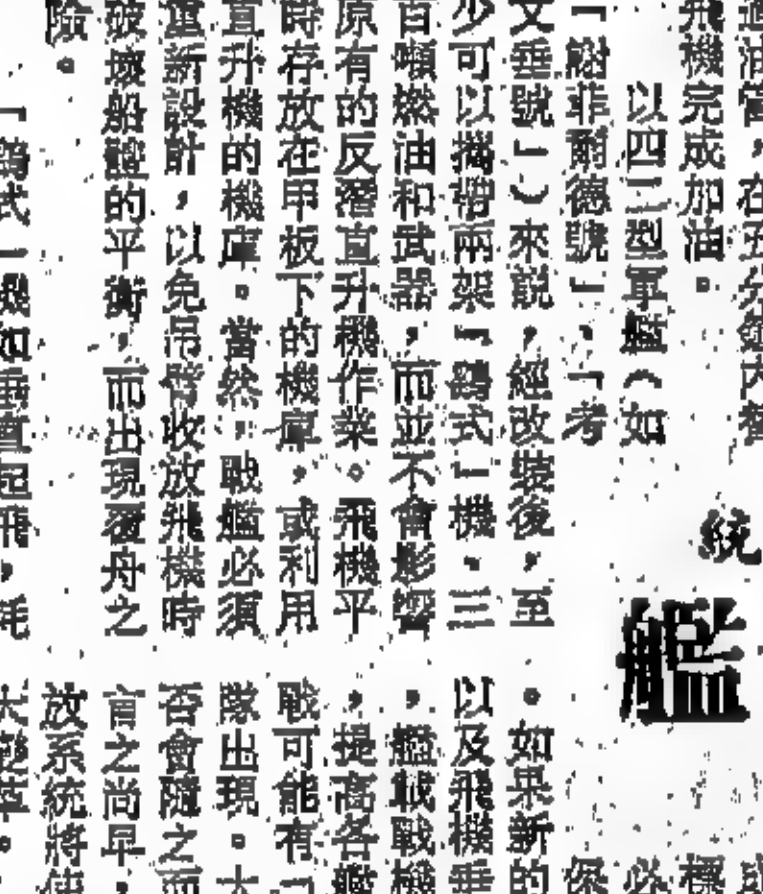 過油管，在五分鐘內替
飛機完成加油。
以四二型軍艦（如
「謝菲爾德號」、「考
文垂號」）來說，經改裝後，至
少可以攜帶兩架「鷂式」機．三
百噸燃油和武器，而並不會影響
原有的反潛直升機作業。飛機平
時存放在甲板下的機庫，或利用
直升機的機庫。當然，戰艦必須
重新設計，以免吊臂收放飛機時
破壞船體的平衡，而出現覆舟之
險。
「鷂式」機如垂直起飛，耗
統
艦
。如果新的
以及飛機垂
，艦載戰機
，提高各艦
戰可能有「
隊出現。大
否會隨之而
言之尚早，
放系統將使